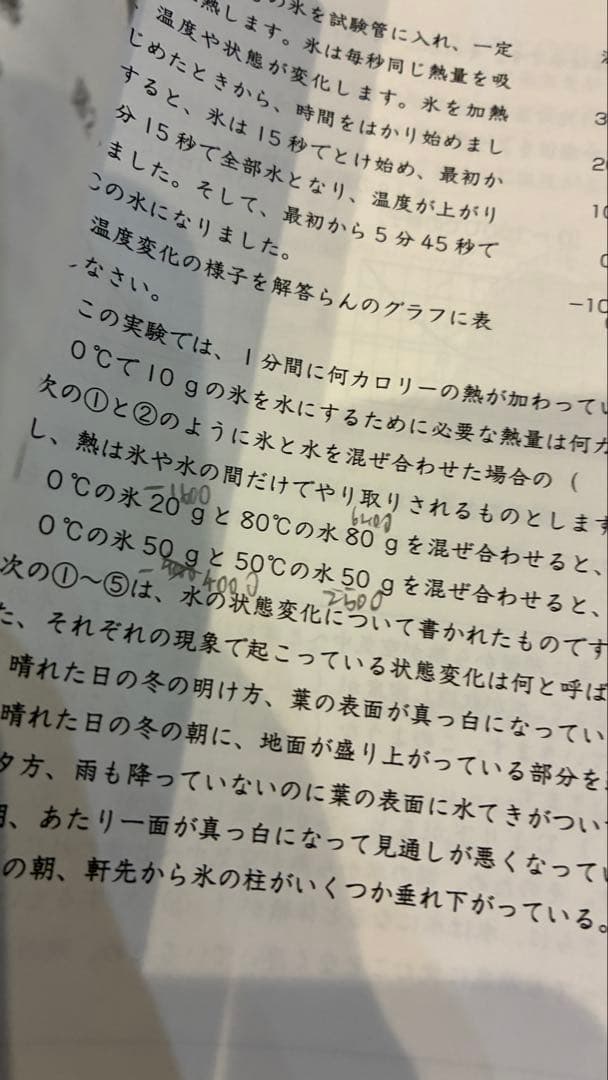 の氷を試験管に入れ、一定
熱します。氷は毎秒同じ熱量を吸
、温度や状態が変化します。氷を加熱
じめたときから、時間をはかり始めまし
すると、氷は15秒でとけ始め、最初か
分15秒で全部水となり、温度が上がり
ました。そして、最初から5分45秒で
この水になりました。
温度変化の様子を解答らんのグラフに表
なさい。
3
20
10
0
-10
この実験では、1分間に何カロリーの熱が加わってい
0℃で10gの氷を水にするために必要な熱量は何カ
次の①と②のように氷と水を混ぜ合わせた場合の（
し、熱は氷や水の間だけでやり取りされるものとします
-1600
6400
0℃の氷20gと80℃の水80gを混ぜ合わせると、
0℃の氷50gと50℃の水50gを混ぜ合わせると、
4000
2500
次の①～⑤は、水の状態変化について書かれたものです
た、それぞれの現象で起こっている状態変化は何と呼ば
晴れた日の冬の明け方、葉の表面が真っ白になってい
晴れた日の冬の朝に、地面が盛り上がっている部分を
夕方、雨も降っていないのに葉の表面に水てきがつい
、あたり一面が真っ白になって見通しが悪くなってい
の朝、軒先から氷の柱がいくつか垂れ下がっている。